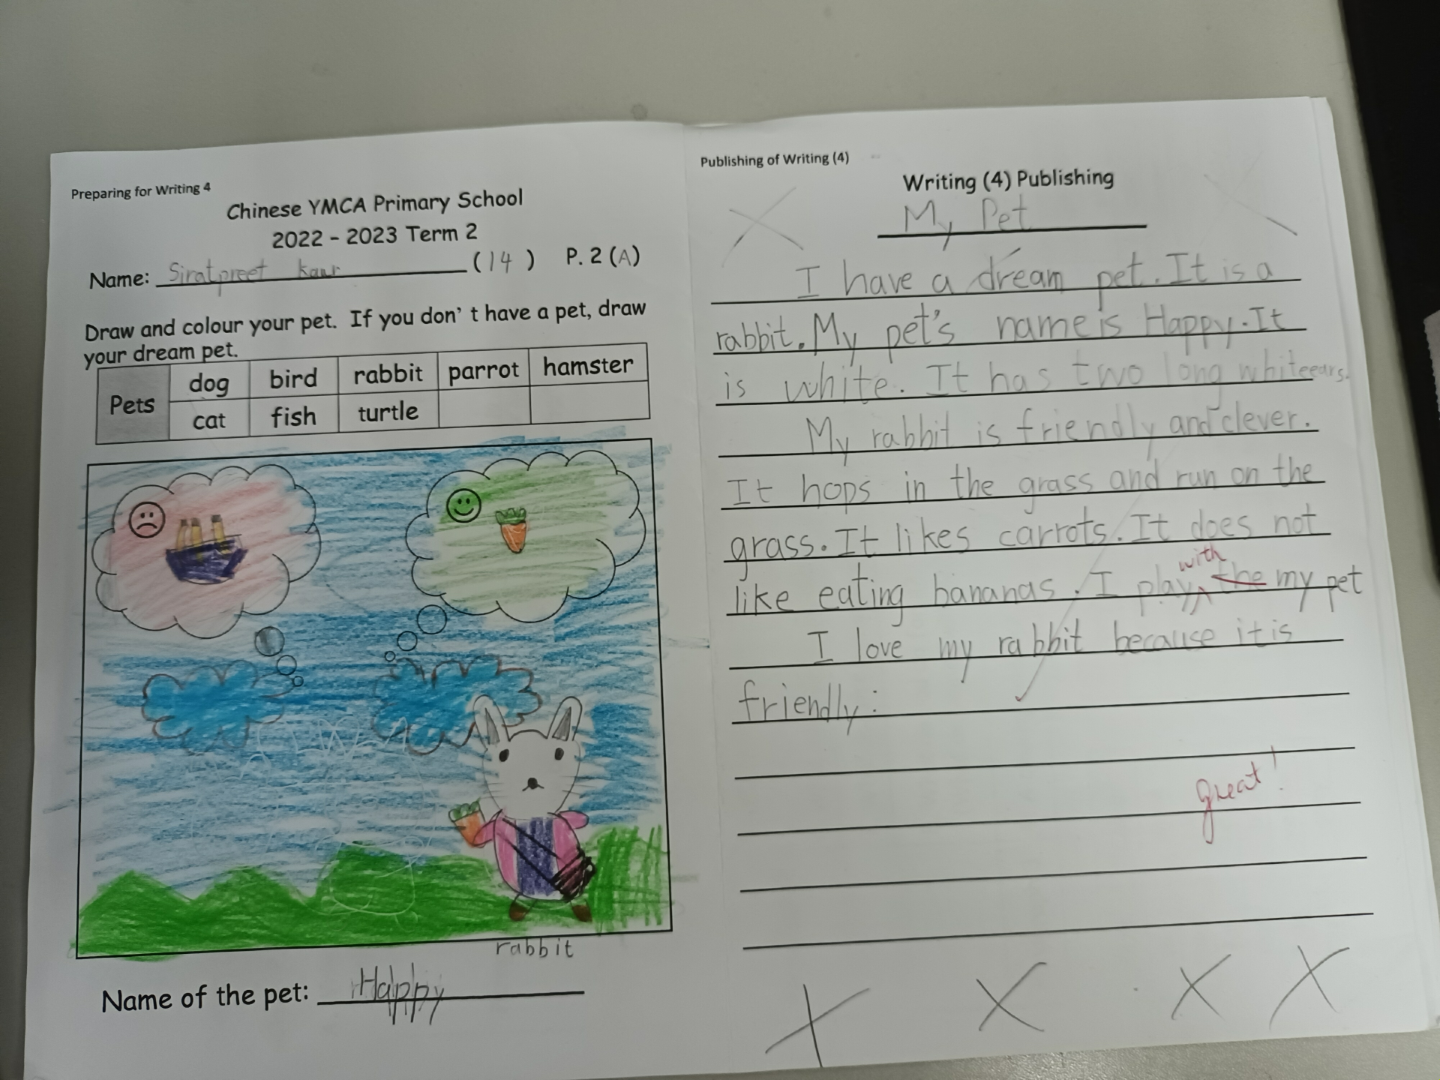 Preparing for Writing 4
Chinese YMCA Primary School
2022 - 2023 Term 2
Name: Siratpreet Kaur (14) P. 2 (A)
Draw and colour your pet. If you don't have a pet, draw
your dream pet.
Pets dog bird rabbit parrot hamster
cat fish turtle
rabbit
Name of the pet: Happy
Publishing of Writing (4)
Writing (4) Publishing
My Pet
I have a dream pet. It is a
rabbit. My pet's name is Happy. It
is white. It has two long white ears.
My rabbit is friendly and clever.
It hops in the grass and run on the
grass. It likes carrots. It does not
with
like eating bananas. I play the my pet
I love my rabbit because it is
friendly.
great!